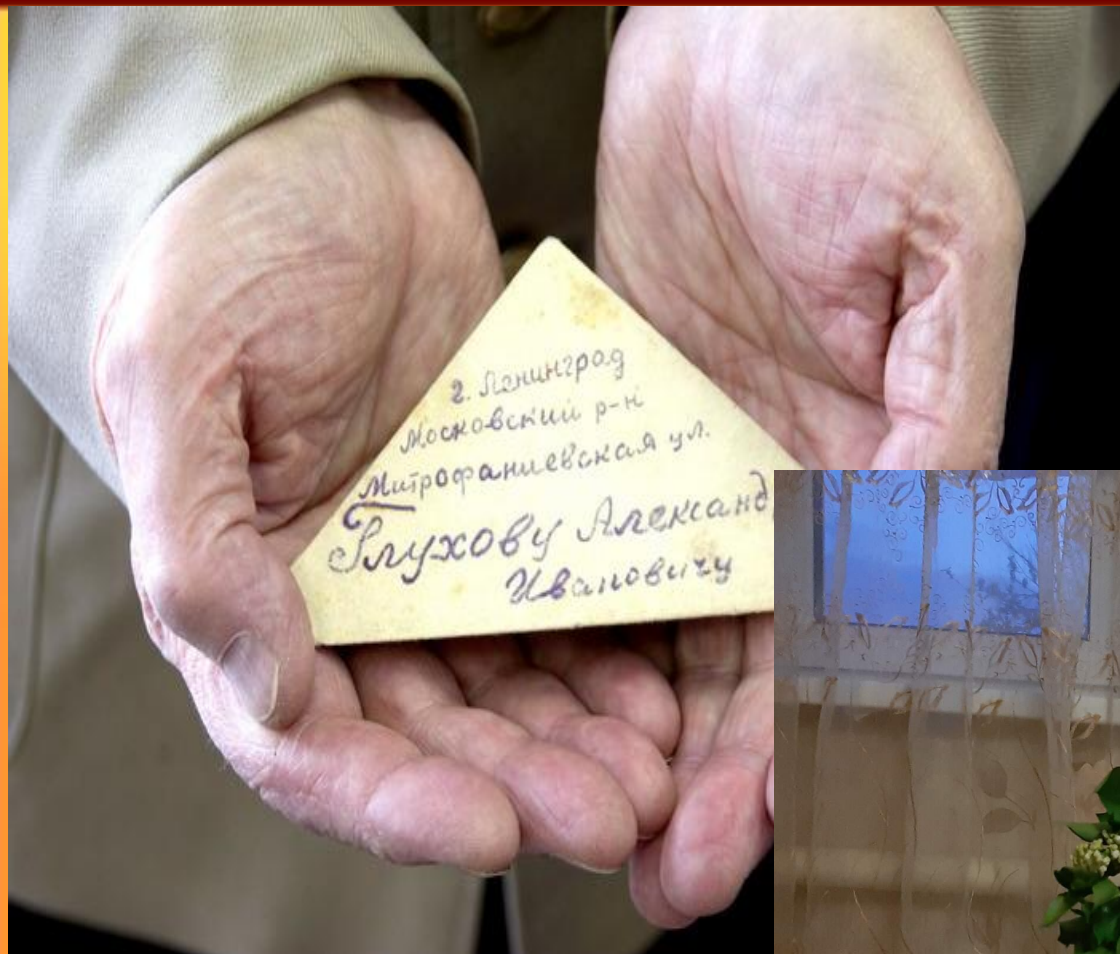 г. Ленинград
Московский р-н
Митрофаниевская ул.
Глухову Александ
Ивановичу